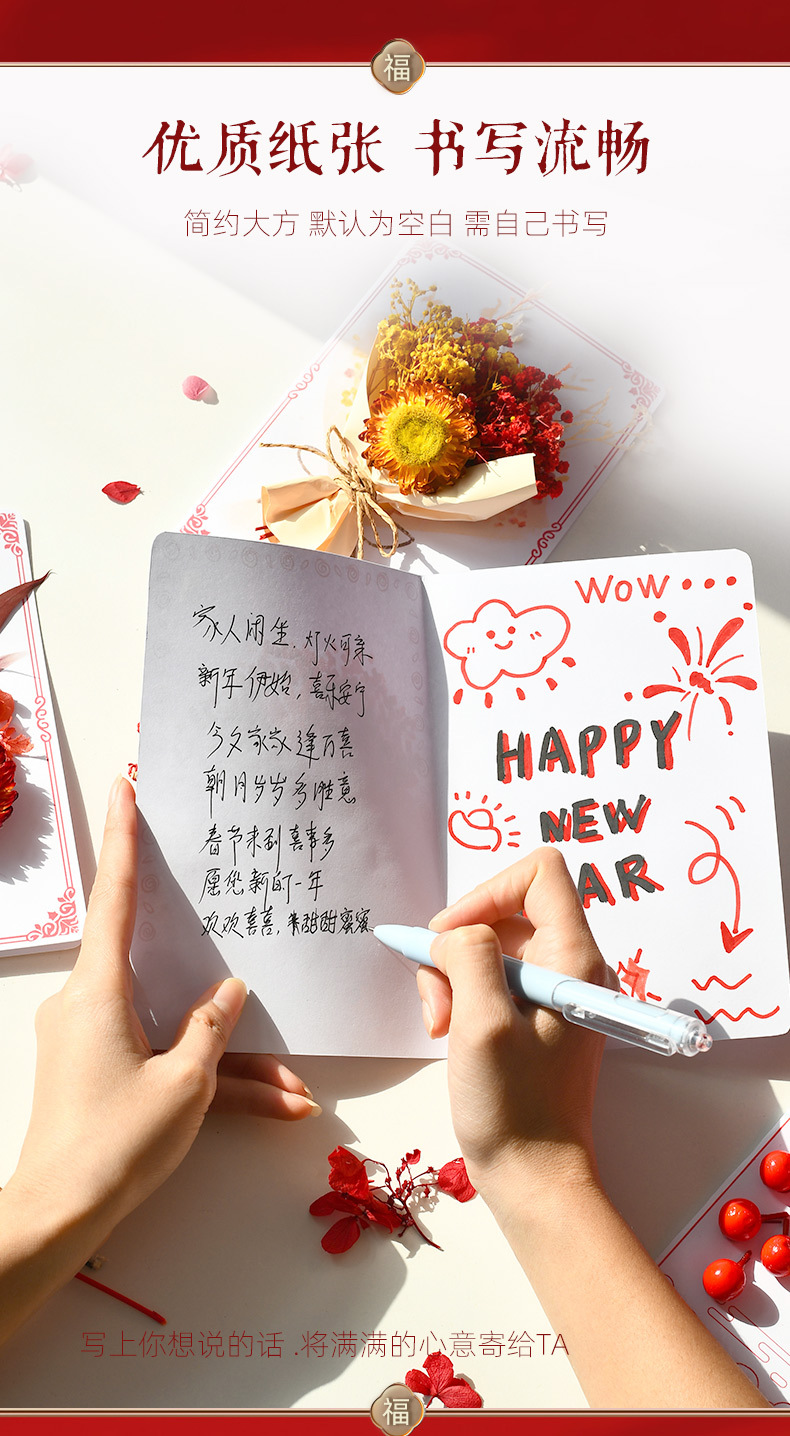 福
优质纸张 书写流畅
简约大方 默认为空白 需自己书写
WOW...
家人闲坐，灯火可亲
新年伊始，喜乐安宁
今夕家家逢万喜
朝月岁岁多胜意
春节来到喜事多
愿您新的一年
欢欢喜喜，甜甜蜜蜜
HAPPY
NEW
AR
写上你想说的话 .将满满的心意寄给TA
福